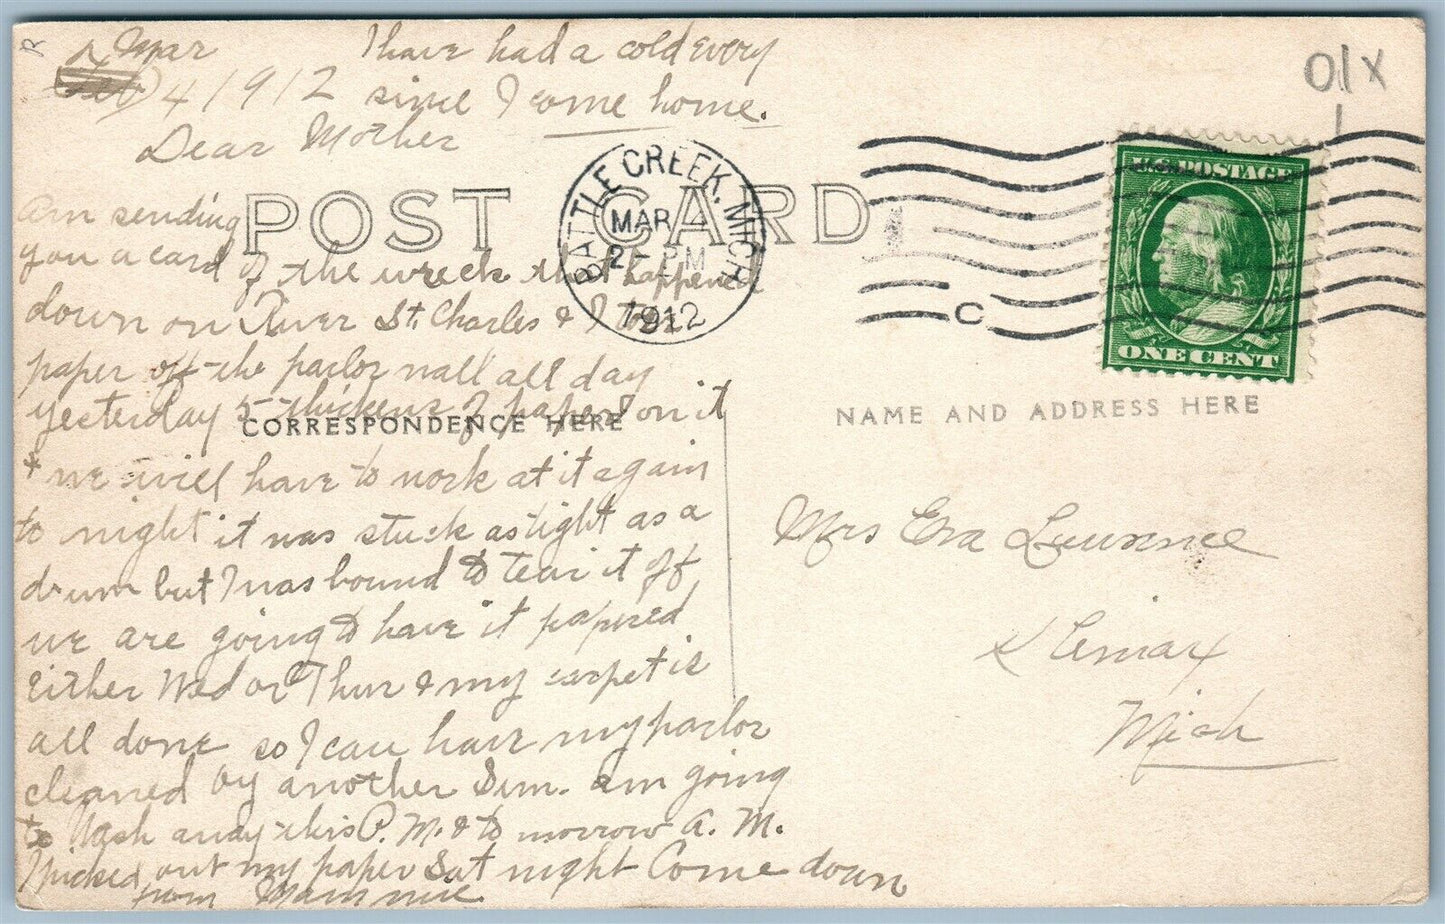 Mar
4 1912
I have had a cold every
since I come home.
Dear Mother
POST CARD
Am sending
you a card of the wreck that happened
down on River St. Charles & I tore
paper off the parlor wall all day
yesterday 5 thickens of paper on it
& we will have to work at it again
to night it was stuck as tight as a
drum but I was bound to tear it off
we are going to have it papered
Either Wed or Thur & my carpet is
all done so I can have my parlor
cleaned by another Sun. am going
to wash away this P.M. & to morrow A.M.
Picked out my paper Sat night Come down
from Mammie
CORRESPONDENCE HERE
BATTLE CREEK, MICH
MAR 4
2- PM
1912
C
U.S. POSTAGE
ONE CENT
01X
R
NAME AND ADDRESS HERE
Mrs Eva Lawrence
Klimax
Mich